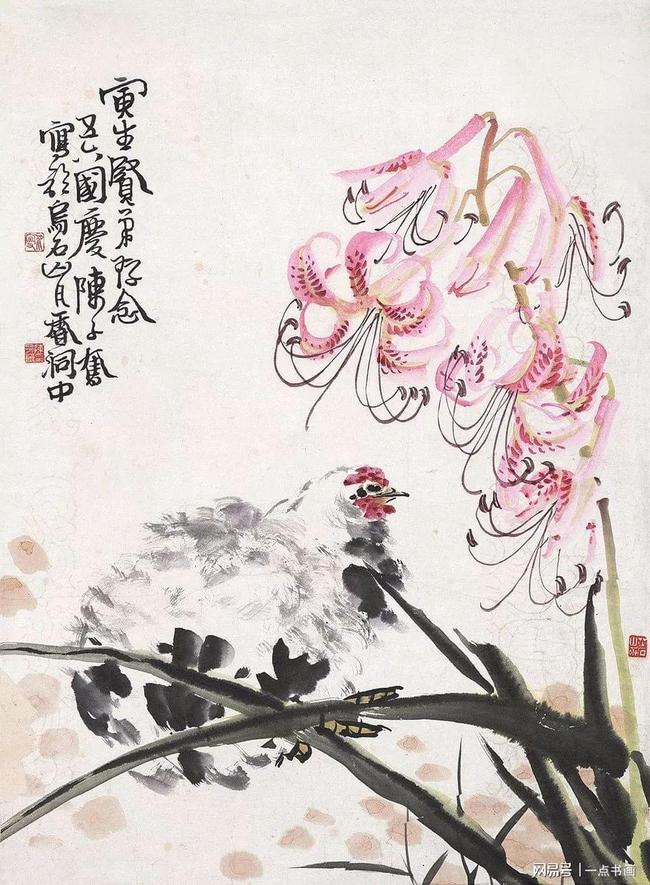 寅生賢弟存念
五六國慶陳子奮
寫於烏石山月香洞中
网易号 | 一点书画